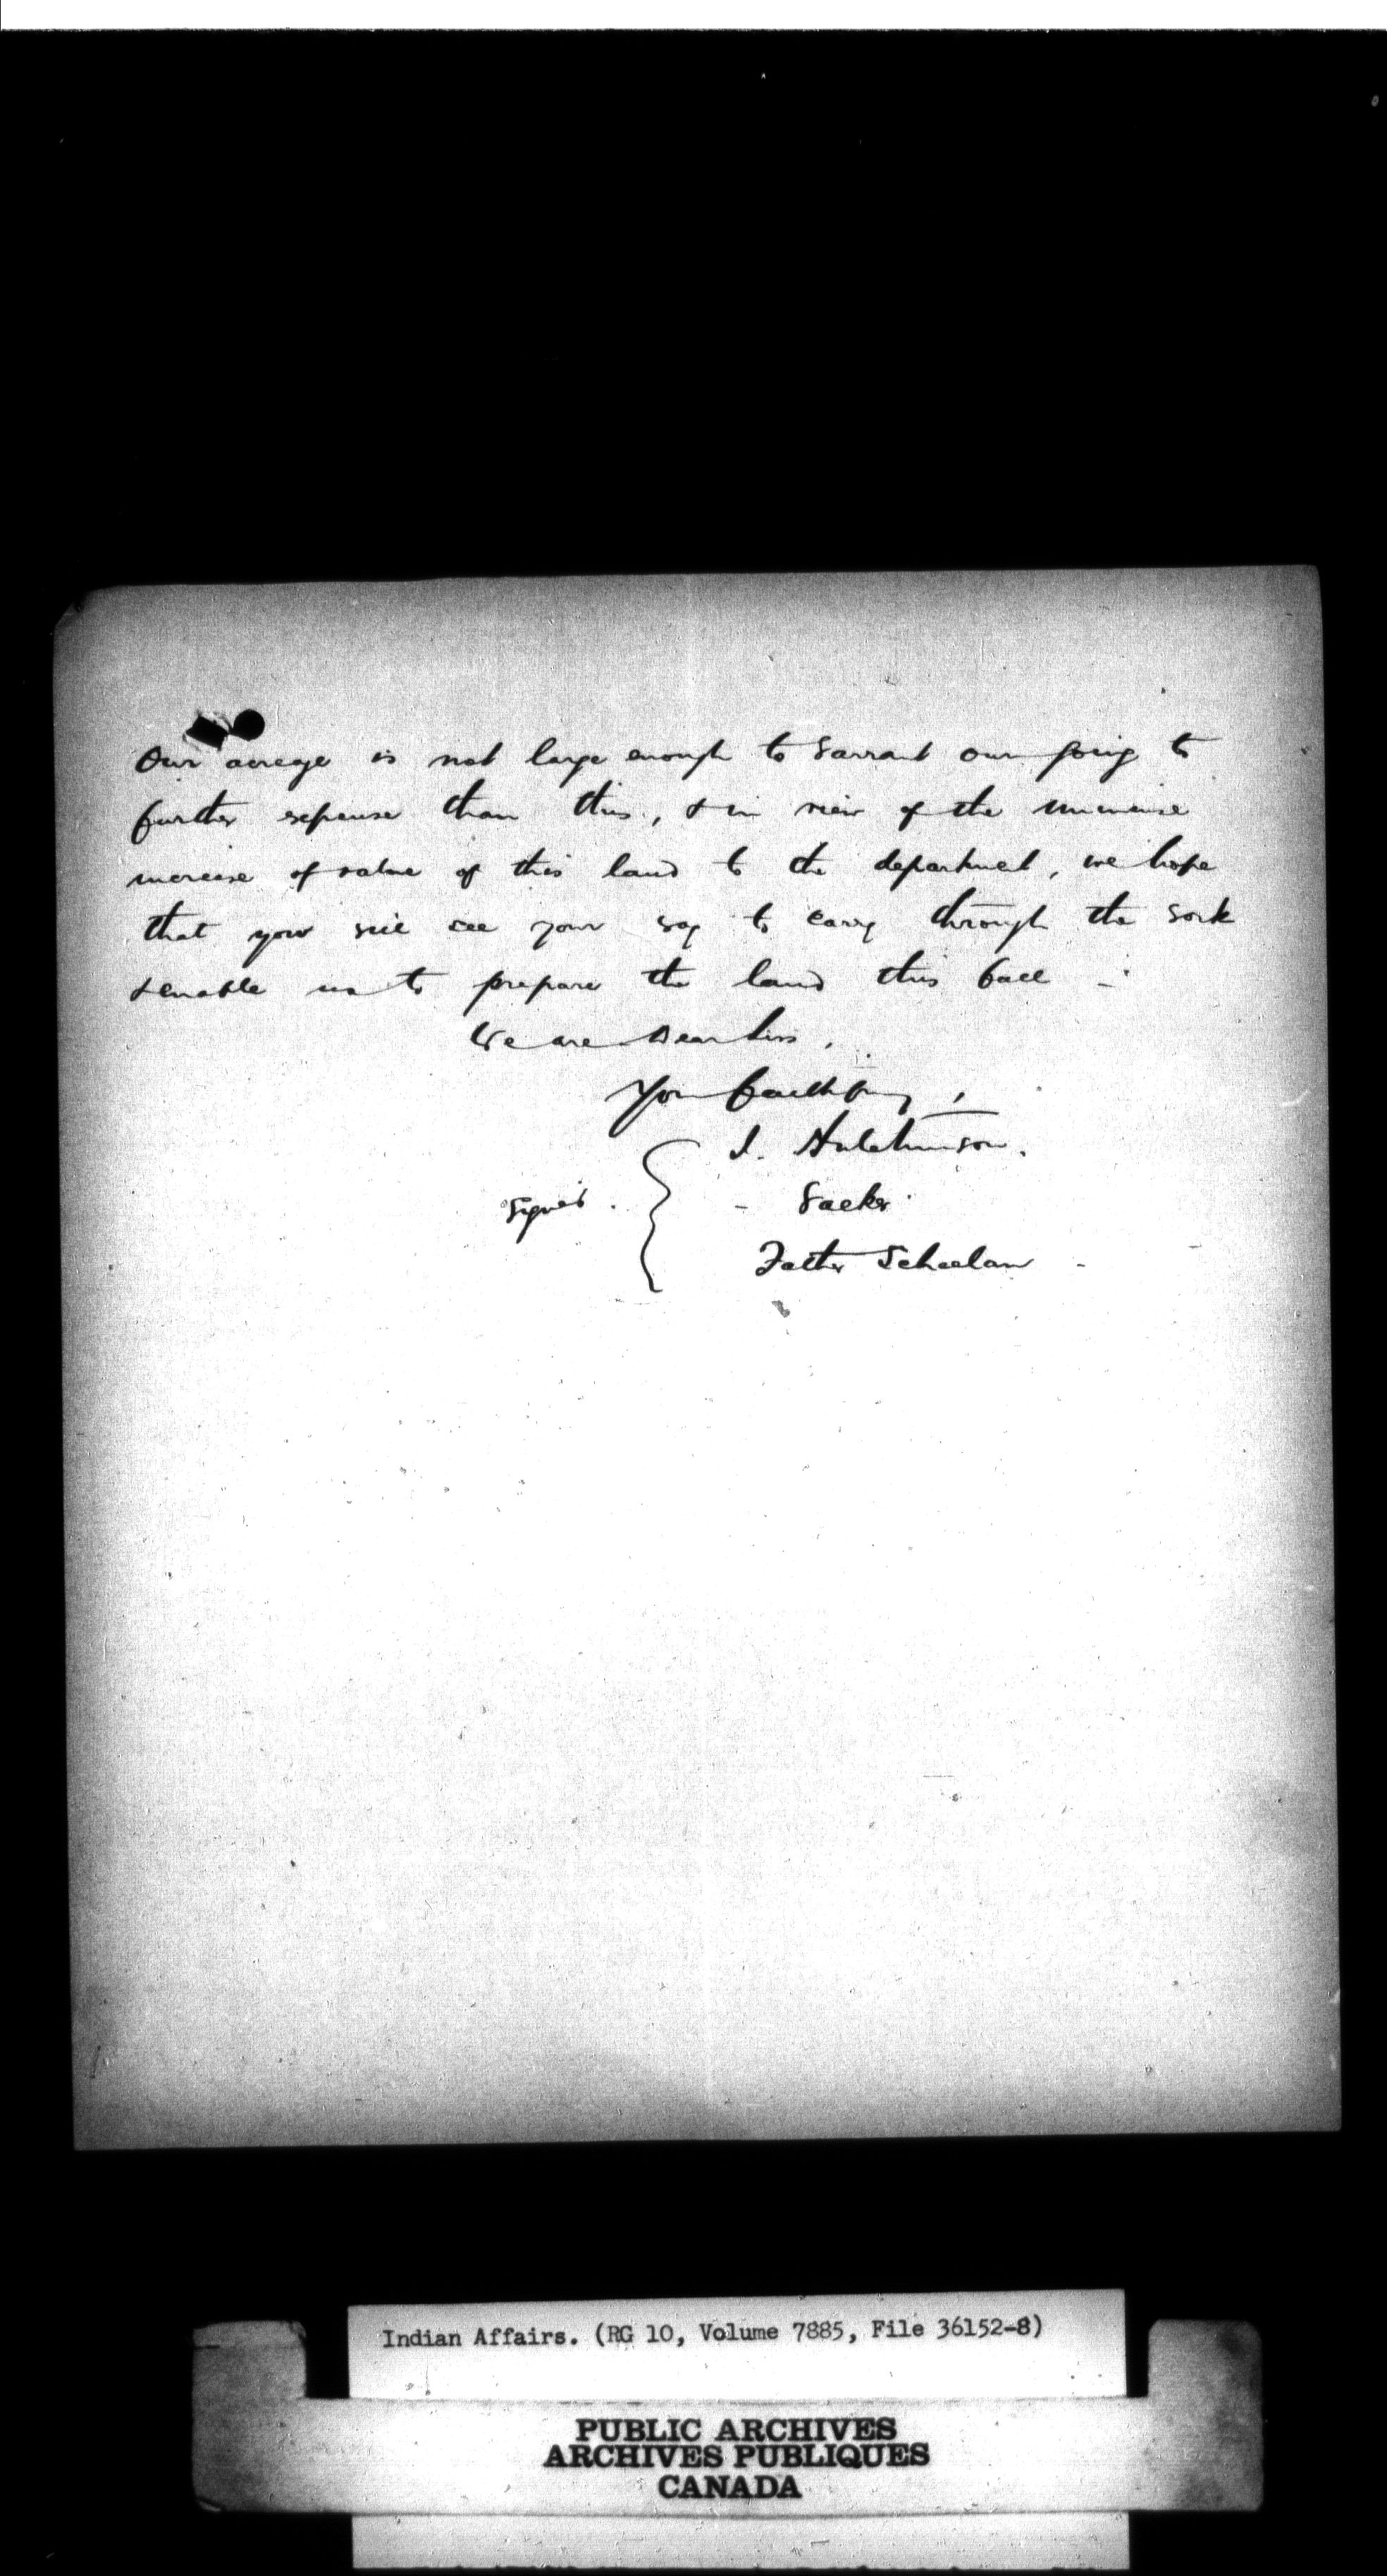 Our acreage is not large enough to warrant our going to
further expense than this, & in view of the immense
increase of value of this land to the department, we hope
that you will see your way to carry through the work
& enable us to prepare the land this fall -
We are Dear Sirs,
Your faithfully,
Signed. J. Hutchinson.
- Packer
Father Scheelan -
Indian Affairs. (RG 10, Volume 7885, File 36152-8)
PUBLIC ARCHIVES
ARCHIVES PUBLIQUES
CANADA